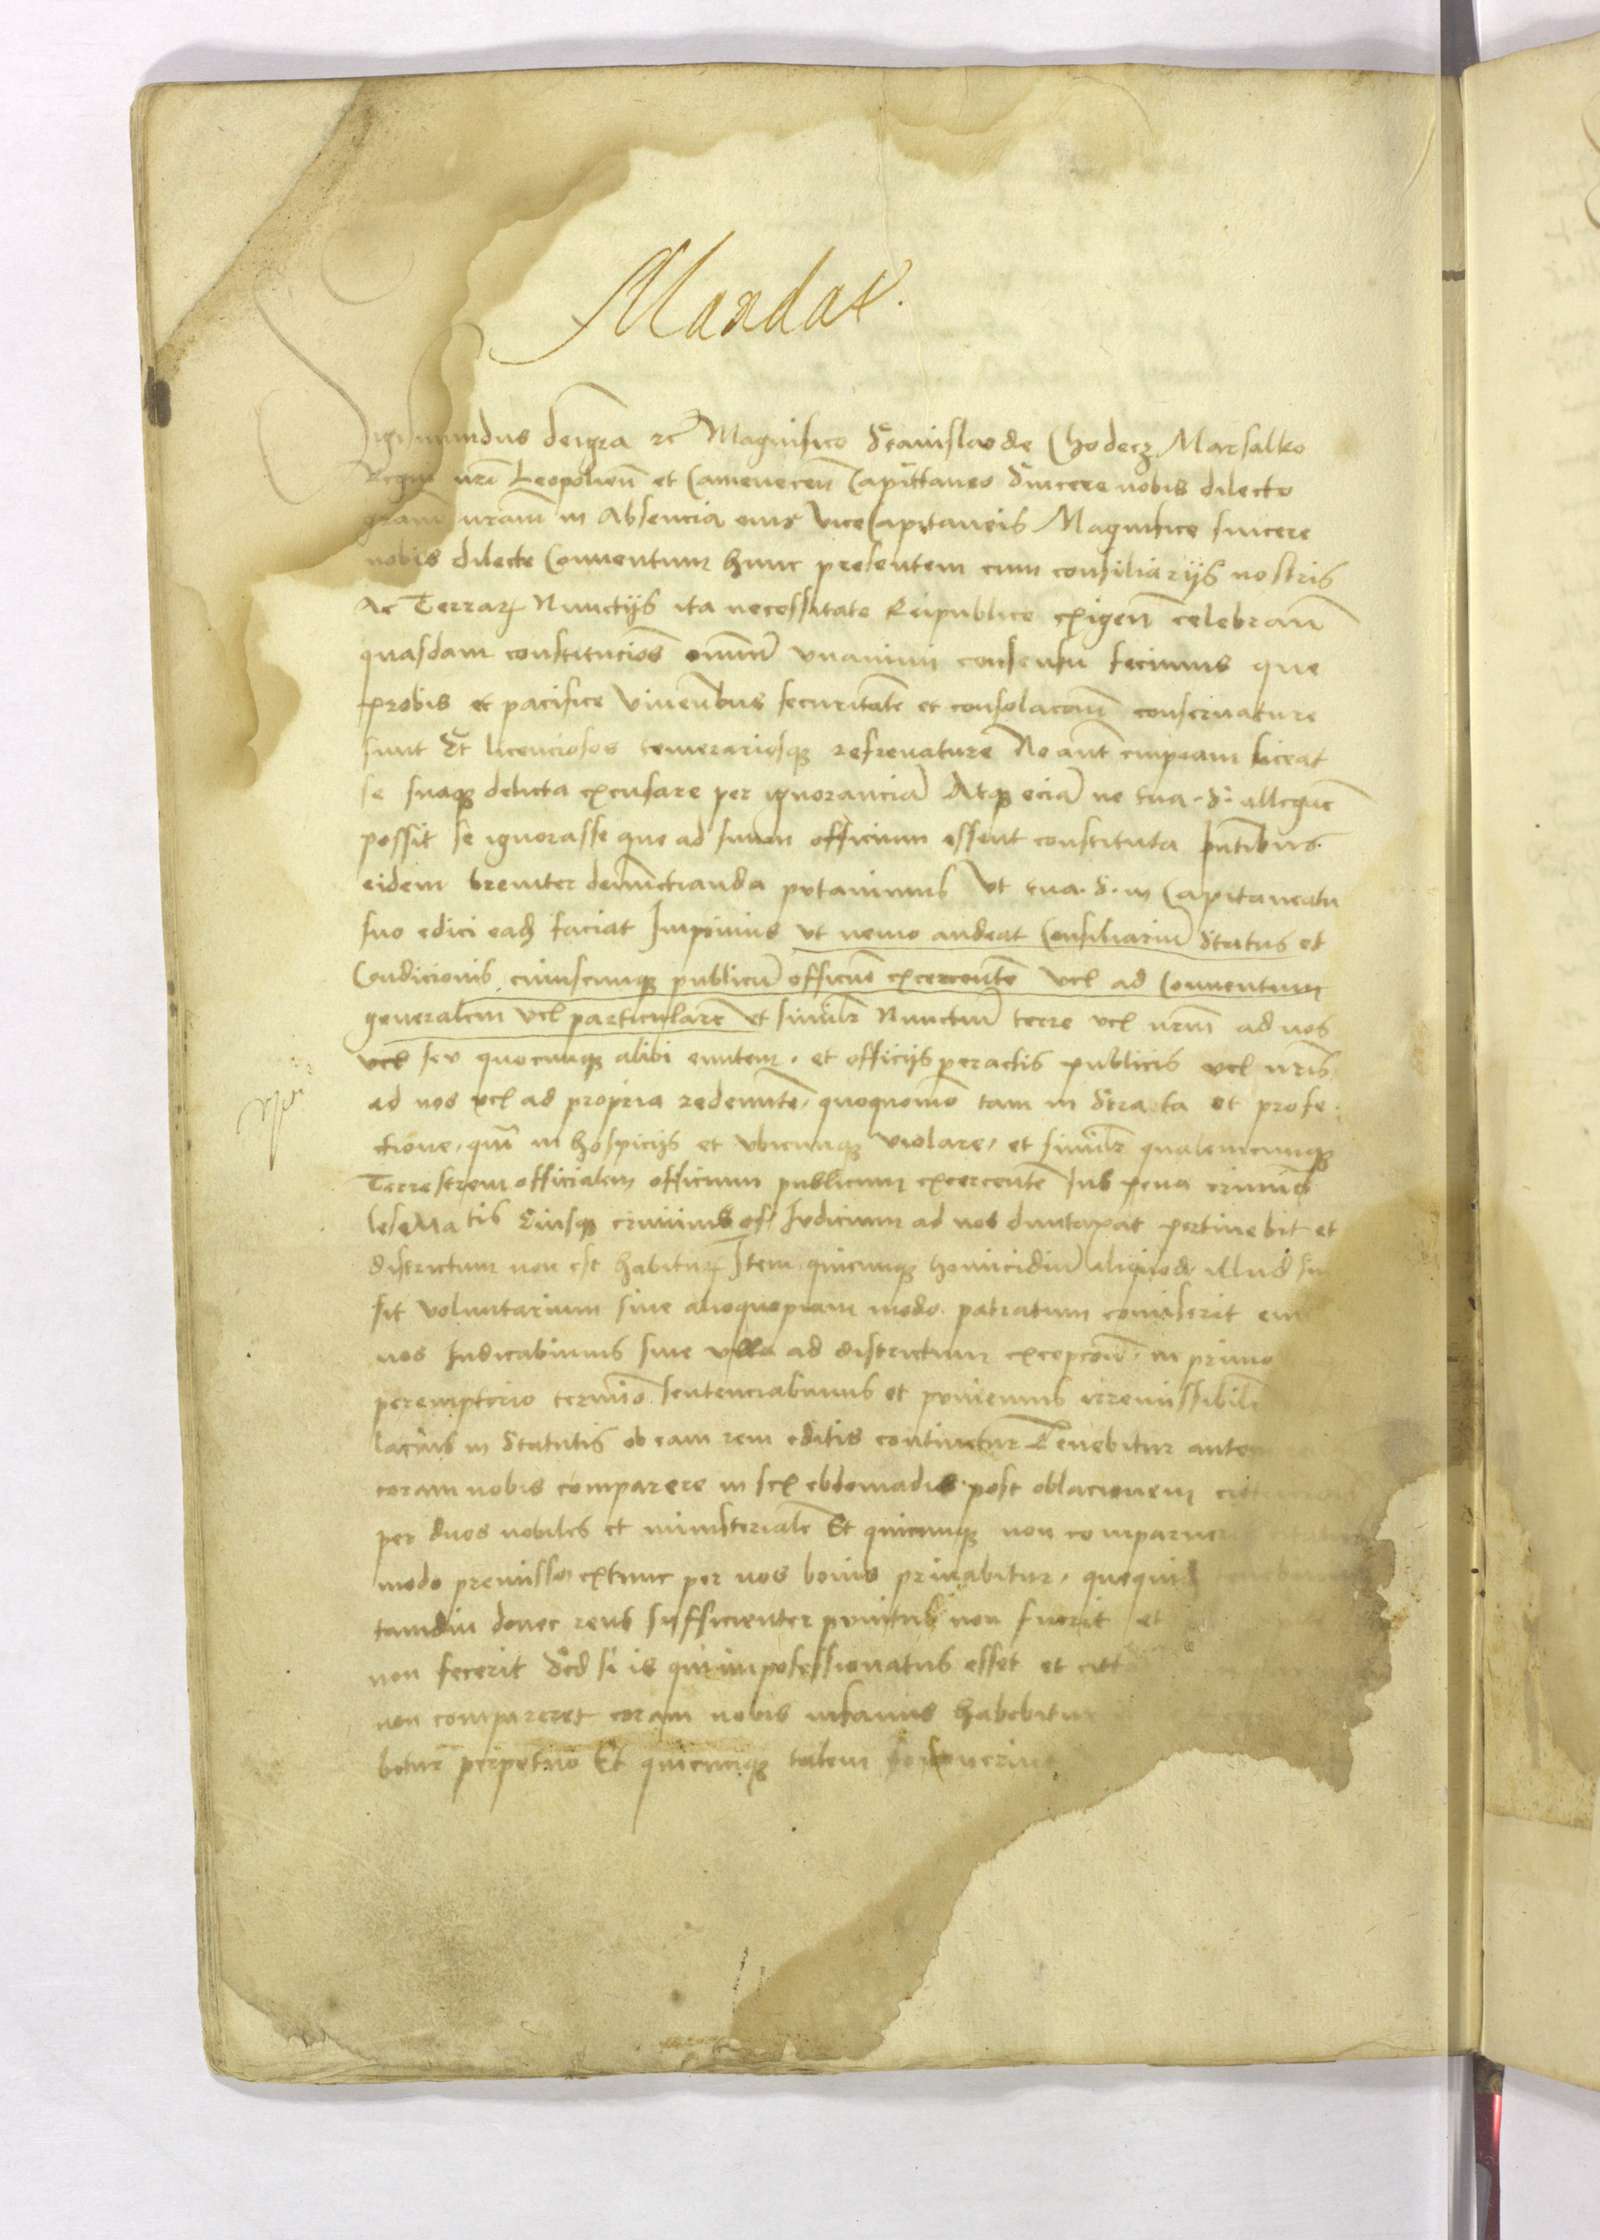 Mandat.
Sigismundus dei gra zc Magnifico Stanislao de Chodecz Marsalko
Regni nri Leopolien et Camenecen Capittaneo Sincere nobis dilecto
gram nram in Absencia eius ViceCapitaneis Magnifice sincere
nobis dilecte Conuentum hunc presentem cum consiliarijs nostris
Ac Terrar Nunctijs ita necessitate Reipublice exigen celebran
quasdam constitucios omnium vnanimi consensu fecimus que
probis et pacifice viuentibus securitatem et consolacom conseruature
sunt Et licenciosos temerariosq refrenature Ne aut cuipiam liceat
se suaq delicta excusare per ignorancia Atq ecia ne tua. S. allegare
possit se ignorasse que ad suum officium essent constituta pntibus
eidem breuiter denunctianda putauimus Vt tua. S. in Capitaneatu
suo edici ea faciat Inprimis vt nemo audeat Consiliarium Status et
Condicionis cuiuscunq publicu officiu excercente vel ad Conuentum
generalem vel particulare et similr Nunctiu terre vel nrm ad nos
seu quocunq alibi euntem. et officijs peractis publicis vel nris
ad nos vel ad propria redeunte, quoquomo tam in Strata et profe
ctione, qm in hospicijs et vbicunq violare, et similr qualemcunq
Terrestrem officialem officium publicum excercente sub pena criminis
lese Matis Eiusq criminis Iudicium ad nos duntaxat pertinebit et
districtum non est habitur Item quicunq homicidiu aliquod, illud siue
sit voluntarium siue alioquopiam modo patratum comiserit
nos Iudicabimus sine vlla ad districtum excepcom, in primo
peremptorio termio sentenciabimus et puniemus irremissibili
lacius in Statutis ob eam rem editis continetur Tenebitur autem
coram nobis comparere in sex ebdomadis post oblacionem
per duos nobiles et ministeriale Et quicunq non comparuerit
modo premisso extunc per nos bonis priuabitur,
tamdiu donec reus sufficienter punitus non fuerit et
non fecerit Sed si is qui impossessionatus esset et
non compareret coram nobis infamis habebitur
bitur perpetuo Et quicunq talem